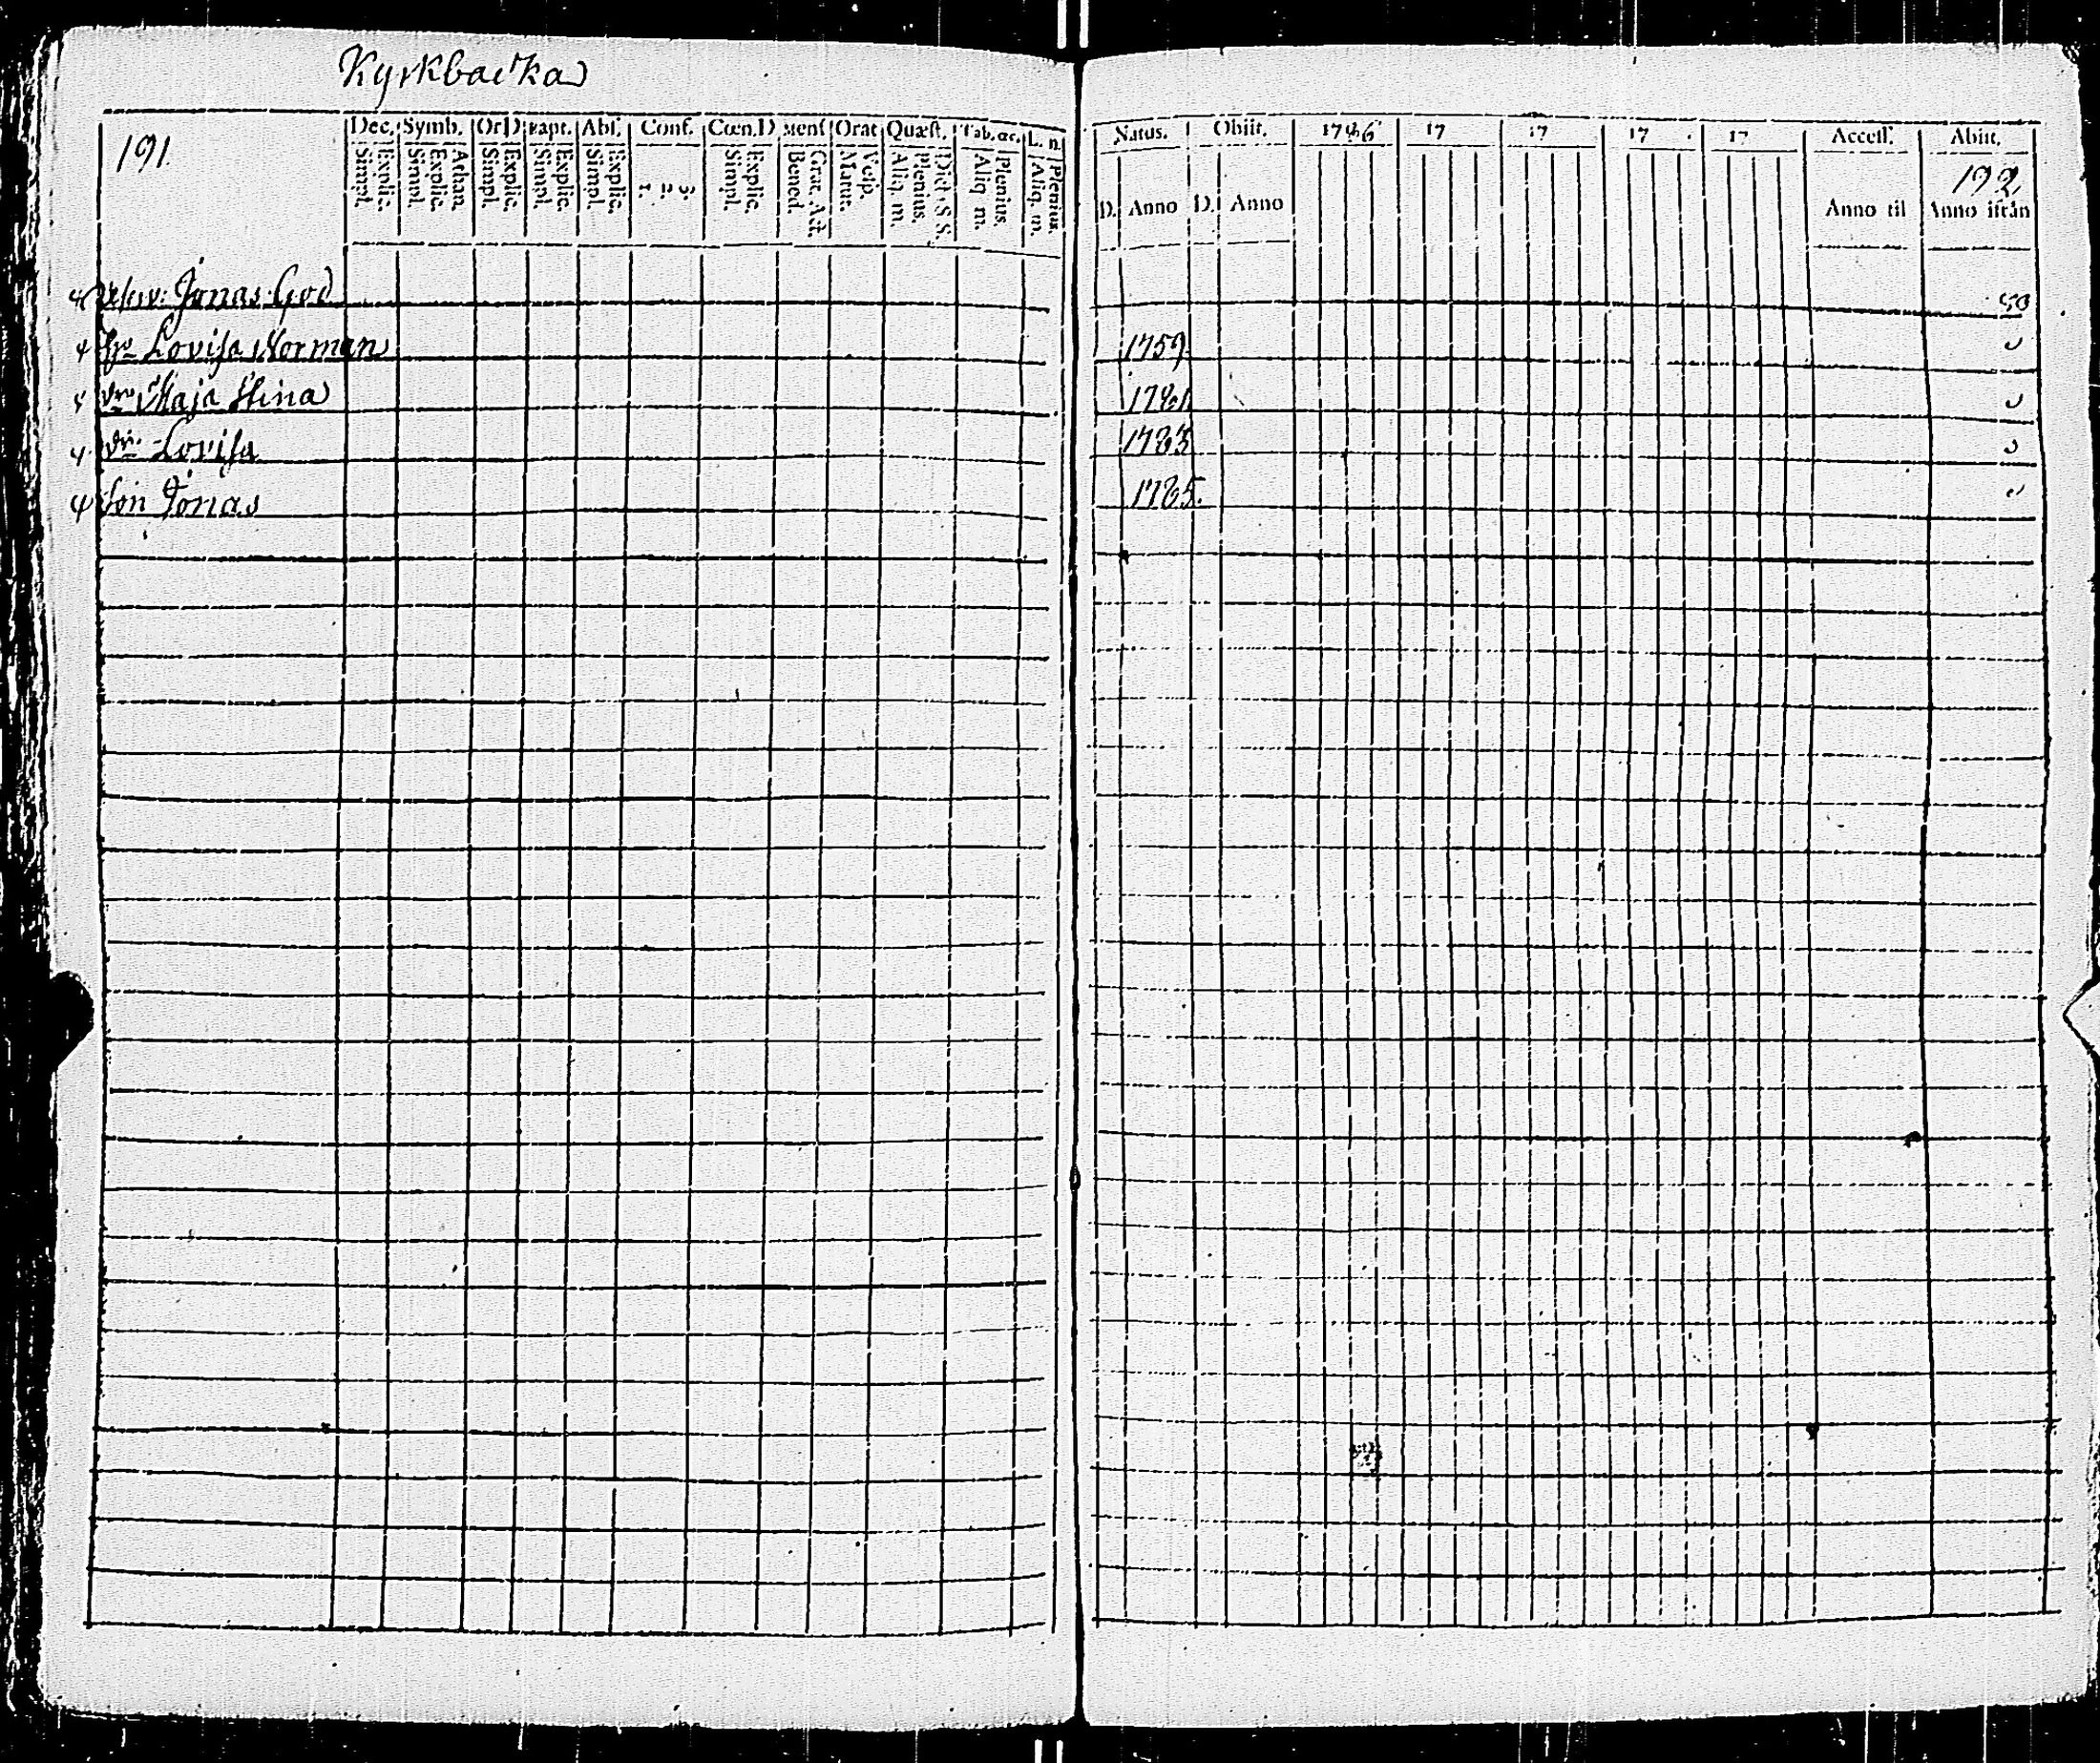 Kyrkbacka
191.
Dec. Symb. Or D Bapt. Abs. Conf. Cœn. D Mens Orat Quæst. Tab. œc. L. n.
Simpl. Explic. Simpl. Explic. Athan. Simpl. Explic. Simpl. Explic. Simpl. Explic. 1. 2. 3. Simpl. Explic. Bened. Grat. Act. Matut. Vesp. Aliq. m. Plenius. Dict. S. S. Aliq. m. Plenius. Aliq. m. Plenius.
Jonas God
Lovisa Norman
Maja Stina
Lovisa
Son Jonas
Natus. Obiit. 1786 17 17 17 17 Access. Abiit.
192.
D. Anno D. Anno Anno til Anno ifrån
50
1759
1781
1783
1785.